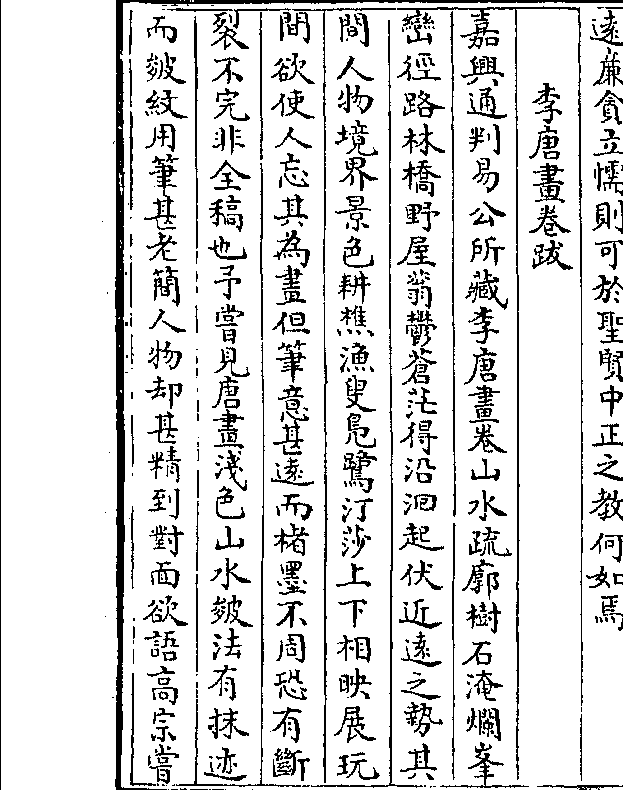 遠廉貪立懦則可於聖賢中正之教何如焉
李唐畫卷跋
嘉興通判易公所藏李唐畫卷山水疏廓樹石淹爛峯
巒徑路林橋野屋蓊鬱蒼茫得沿洄起伏近遠之勢其
間人物境界景色耕樵漁叟鳧鷺汀莎上下相映展玩
間欲使人忘其為畫但筆意甚遠而楮墨不周恐有斷
裂不完非全稿也予嘗見唐畫淺色山水皴法有抹迹
而皴紋用筆甚老簡人物却甚精到對面欲語高宗嘗